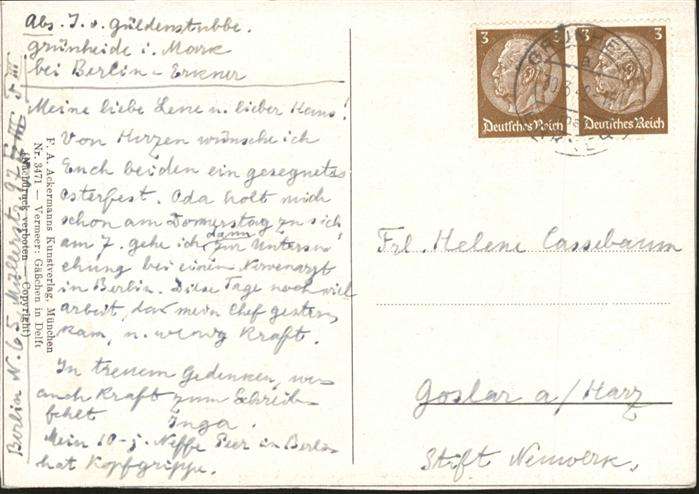 Abs. I. v. Güldenstubbe.
Grünheide i. Mark
bei Berlin - Erkner
Meine liebe Lene u. lieber Hans!
Von Herzen wünsche ich
Euch beiden ein gesegnetes
Osterfest. Oda holt mich
schon am Donnerstag zu sich
am 7. gehe ich dann zur Untersu-
chung bei einem Nervenarzt
in Berlin. Diese Tage noch viel
arbeit, da mein Chef gestern
kam, u. wenig Kraft.
In treuem Gedenken, wo
auch Kraft zum Schreib-
fehlt
Inga.
Mein 10-j. Neffe Peer in Berlin
hat Kopfgrippe.
Berlin N. 65 Müllerstr. 97
F. A. Ackermanns Kunstverlag, München
Nr. 3471 — Vermeer: Gäßchen in Delft
(Nachdruck verboten — Copyright)
3
Deutsches Reich
3
Deutsches Reich
Frl. Helene Cassebaum
Goslar a/Harz
Stift Neuwerk.